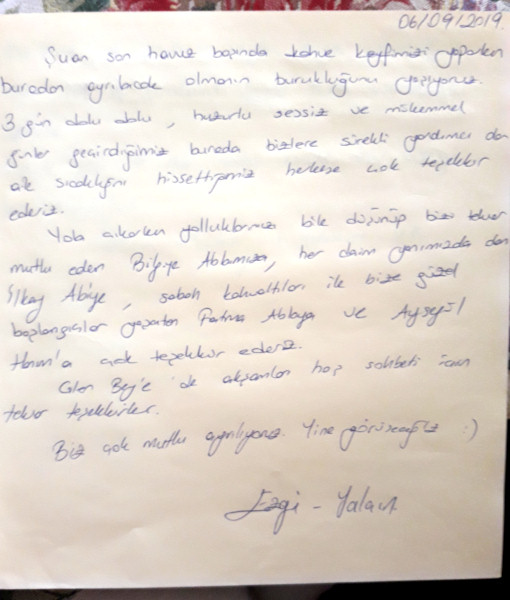 06/09/2019
Şuan son havuz başında kahve keyfimizi yaparken
buradan ayrılacak olmanın burukluğunu yaşıyoruz.
3 gün dolu dolu, huzurlu sessiz ve mükemmel
günler geçirdiğimiz burada bizlere sürekli yardımcı olan
aile sıcaklığını hissettiren herkese çok teşekkür
ederiz.
Yola çıkarken yolluklarımızı bile düşünüp bizi tekrar
mutlu eden Ablamıza, her daim yanımızda olan
İlkay Abi'ye, sabah kahvaltıları ile bize güzel
başlangıçlar yaşatan Fatma Ablaya ve Ayşegül
Hanım'a çok teşekkür ederiz.
Bey'e de akşamları hoş sohbeti için
tekrar teşekkürler.
Biz çok mutlu ayrılıyoruz. Yine görüşeceğiz :)
Ezgi - Yalçın